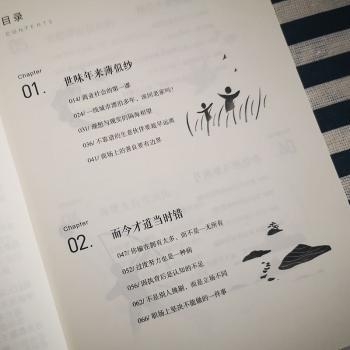 目录
CONTENTS
Chapter
01.
世味年来薄似纱
014/ 商业社会的第一课
024/ 一线城市漂泊多年，该回老家吗？
031/ 理想与现实的隔海相望
036/ 不靠谱的生意伙伴要趁早远离
041/ 商场上的善良要有边界
Chapter
02.
而今才道当时错
047/ 你输在拥有太多，而不是一无所有
052/ 过度努力也是一种病
056/ 因执背后是认知的不足
062/ 不是别人挑剔，而是立场不同
066/ 职场上坚决不能做的一件事